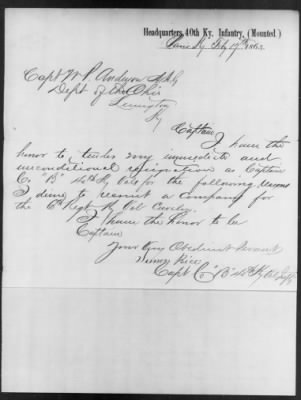 Headquarters, 40th Ky. Infantry, (Mounted.)
Ky Feby 17th 186
Capt W P Anderson
Dept of the Ohio
Lexington
Ky
Captain
I have the
honor to tender my immediate and
unconditional resignation as Captain
Co "B" 40th Ky Vols for the following reasons
I desire to recruit a company for
the 6th Regt Ky Vol Cavalry.
I have the honor to be
Captain
Your Obedient Servant
Rice
Capt Co "B" 40th Ky Vol Inf